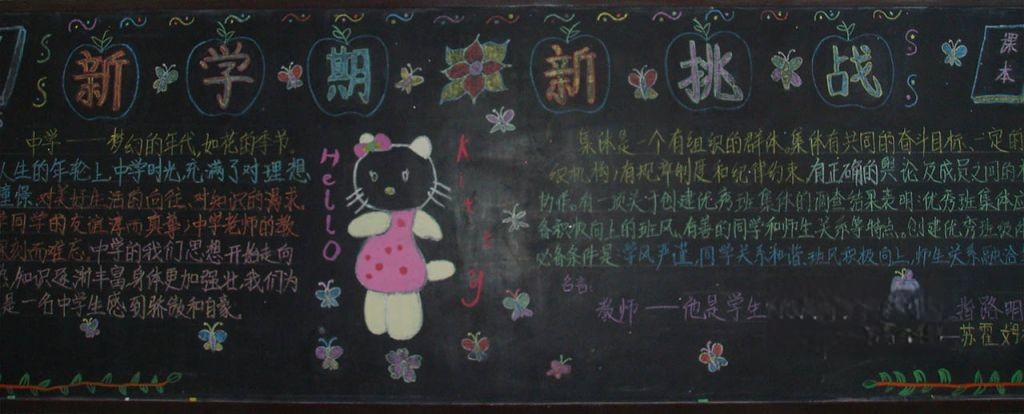 新学期 新挑战
课本
中学——梦幻的年代,如花的季节。
人生的年轮上,中学时光,充满了对理想
憧憬、对美好生活的向往、对知识的渴求,
同学的友谊淳而真挚,中学老师的教
深刻而难忘。中学的我们思想开始走向
知识逐渐丰富身体更加强壮,我们为
是一名中学生感到骄傲和自豪。
Hello
Kitty
集体是一个有组织的群体,集体有共同的奋斗目标、一定的
组织机构,有规章制度和纪律约束,有正确的舆论及成员之间的
协作。有一项关于创建优秀班集体的调查结果表明:优秀班集体应
备积极向上的班风、有善的同学和师生关系等特点。创建优秀班级
必备条件是:学风严谨,同学关系和谐,班风积极向上,师生关系融洽
名言:
教师——他是学生 指路明
——苏霍姆